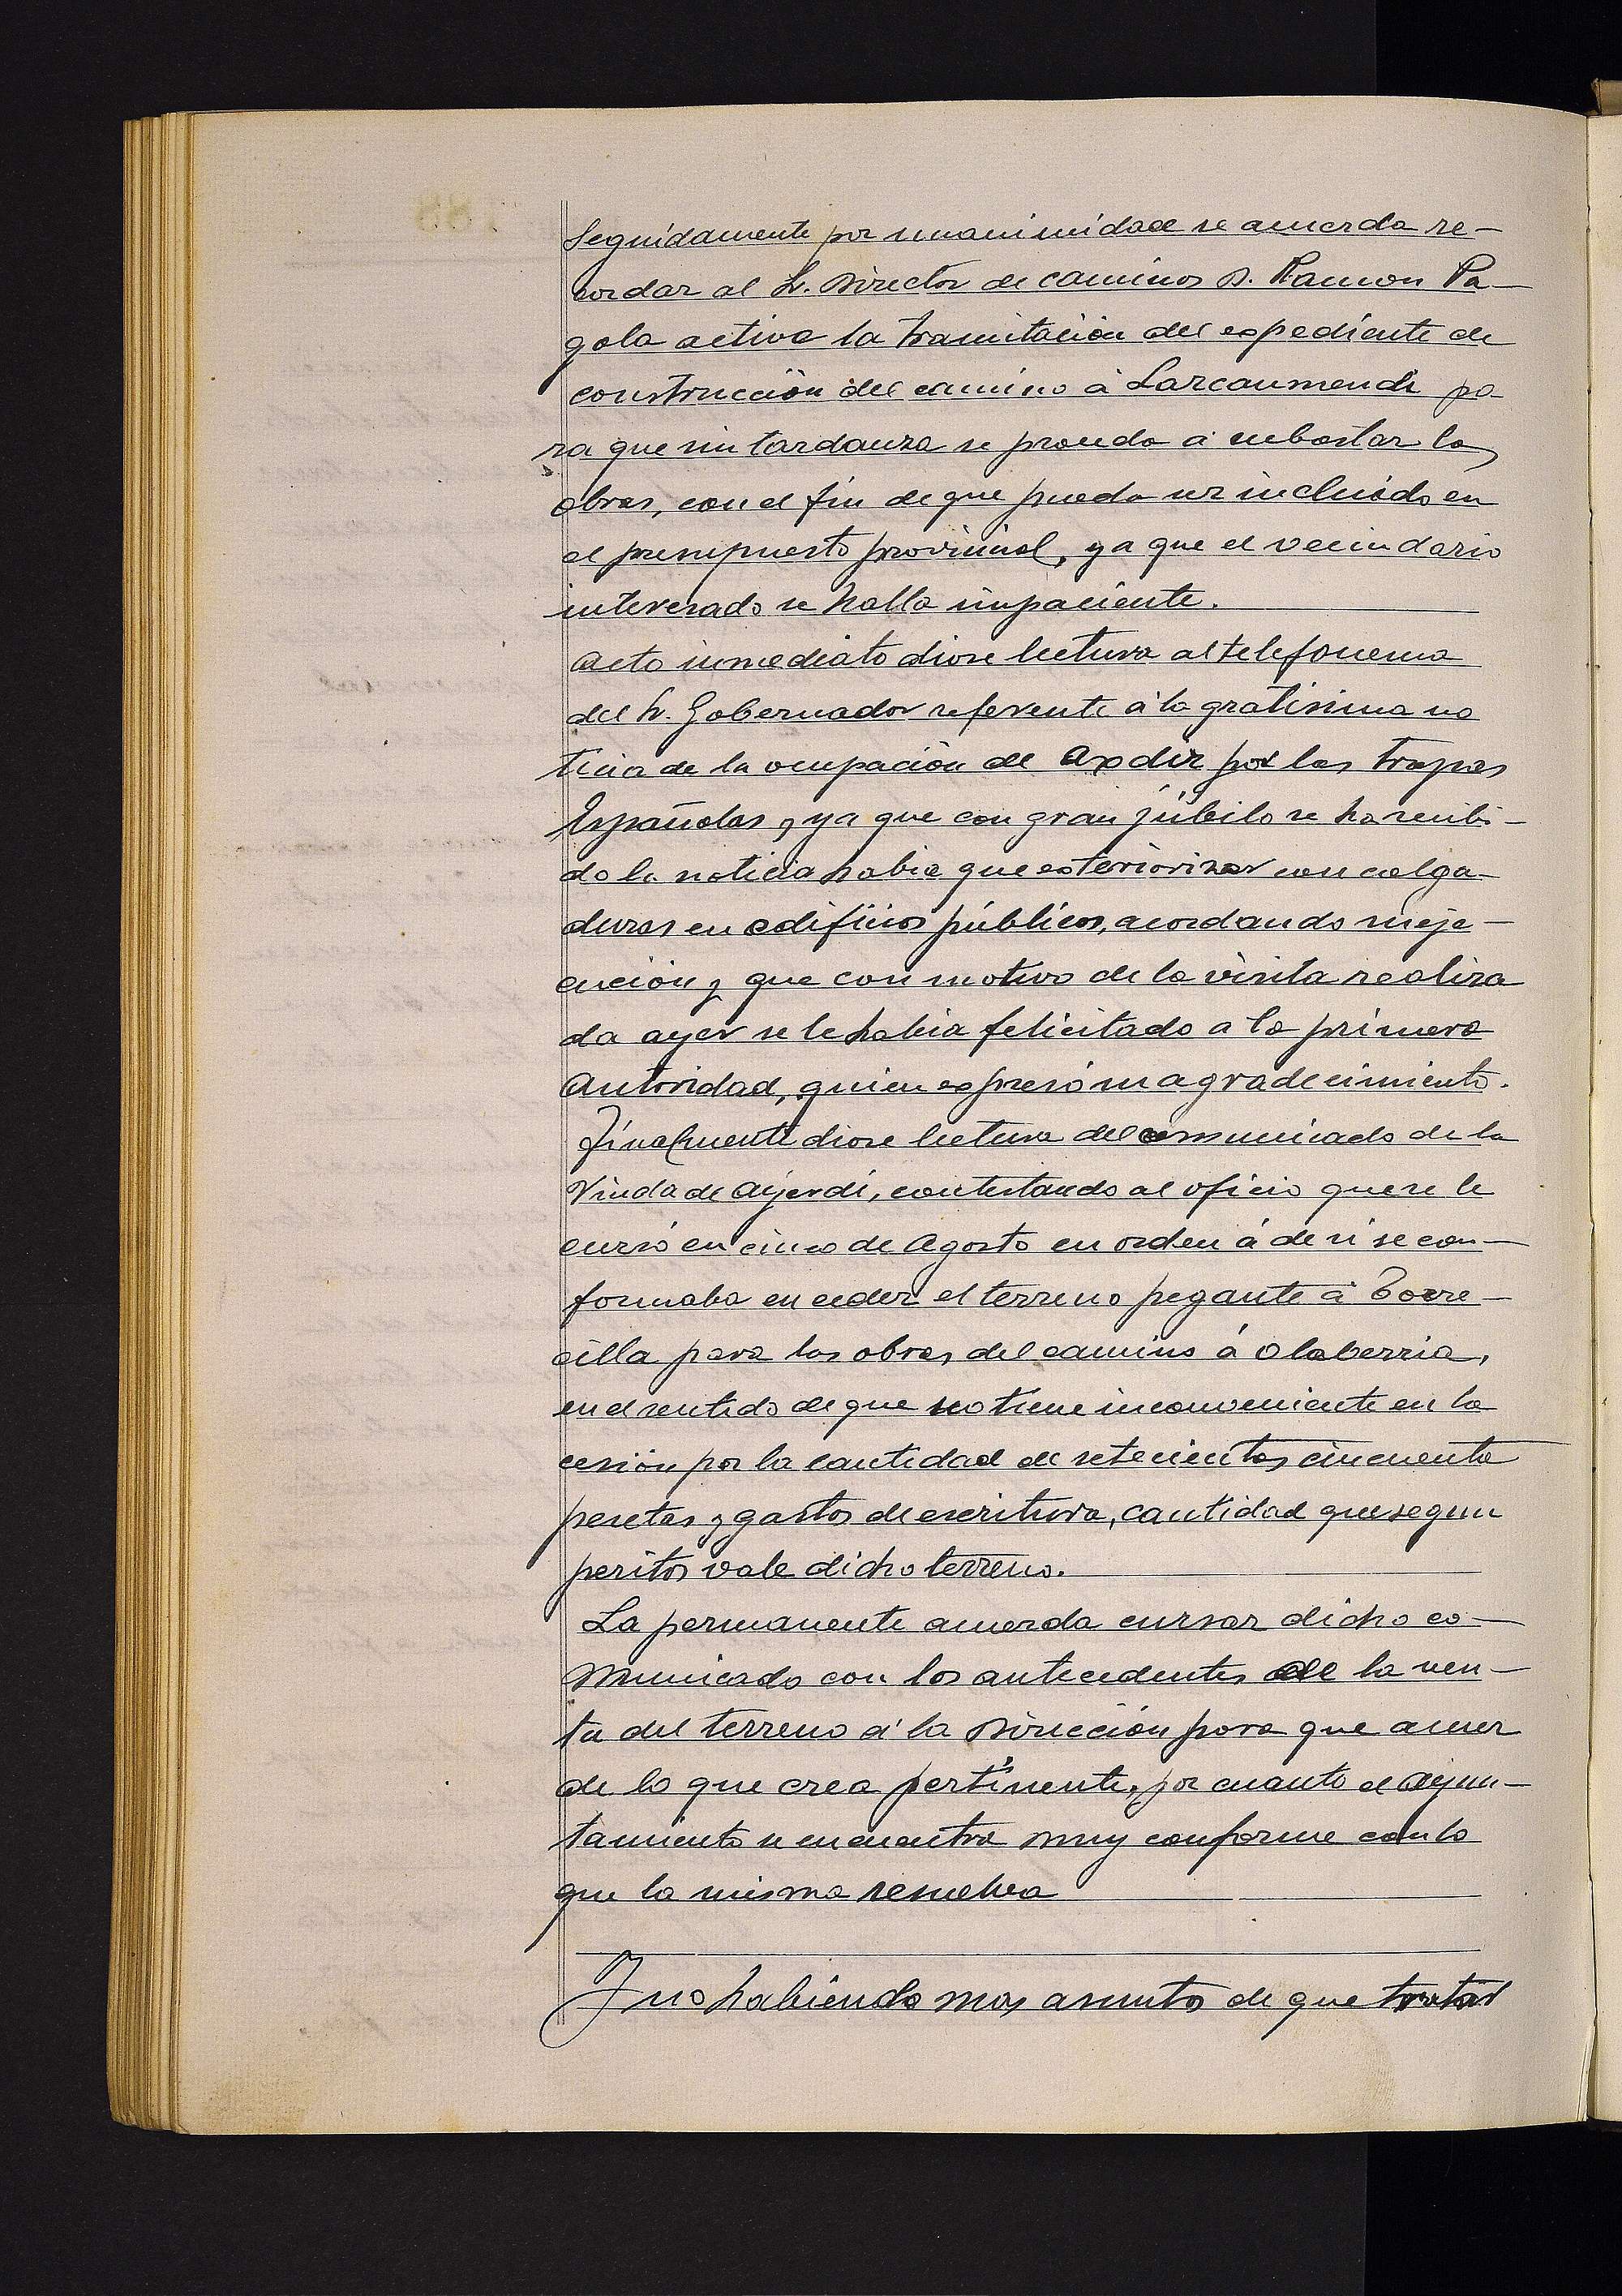 Seguidamente por unanimidad se acuerda re-
cordar al Sr. Director de caminos D. Ramon Pa-
gola active la tramitación del expediente de
construcción del camino á Larcaumendi pa
ra que sin tardanza se proceda á subastar las
obras, con el fin de que pueda ser incluido en
el presupuesto provincial, ya que el vecindario
interesado se halla impaciente.
Acto inmediato diose lectura al telefonema
del Sr. Gobernador referente á la gratisima no
ticia de la ocupación de Axdir por las tropas
Españolas y ya que con gran júbilo se ha recibi-
do la noticia habia que exteriorizar con colga-
duras en edificios públicos, acordando su eje-
cución y que con motivo de la visita realiza
da ayer se le habia felicitado a la primera
Autoridad, quien expresó su agradecimiento.
Finalmente diose lectura del comunicado de la
Viuda de Ayerdi, contestando al oficio que se le
cursó en cinco de Agosto en orden á de si se con-
formaba en ceder el terreno pegante á Torre-
cilla para las obras del camino á Olaberria,
en el sentido de que no tiene inconveniente en la
cesión por la cantidad de setecientas cincuenta
pesetas y gastos de escritura, cantidad que segun
peritos vale dicho terreno.
La permanente acuerda cursar dicho co-
municado con los antecedentes de la ven-
ta del terreno á la Dirección para que acuer
de lo que crea pertinente, por cuanto el Ayun-
tamiento se encuentra muy conforme con lo
que la misma resuelva
Y no habiendo mas asuntos de que tratar